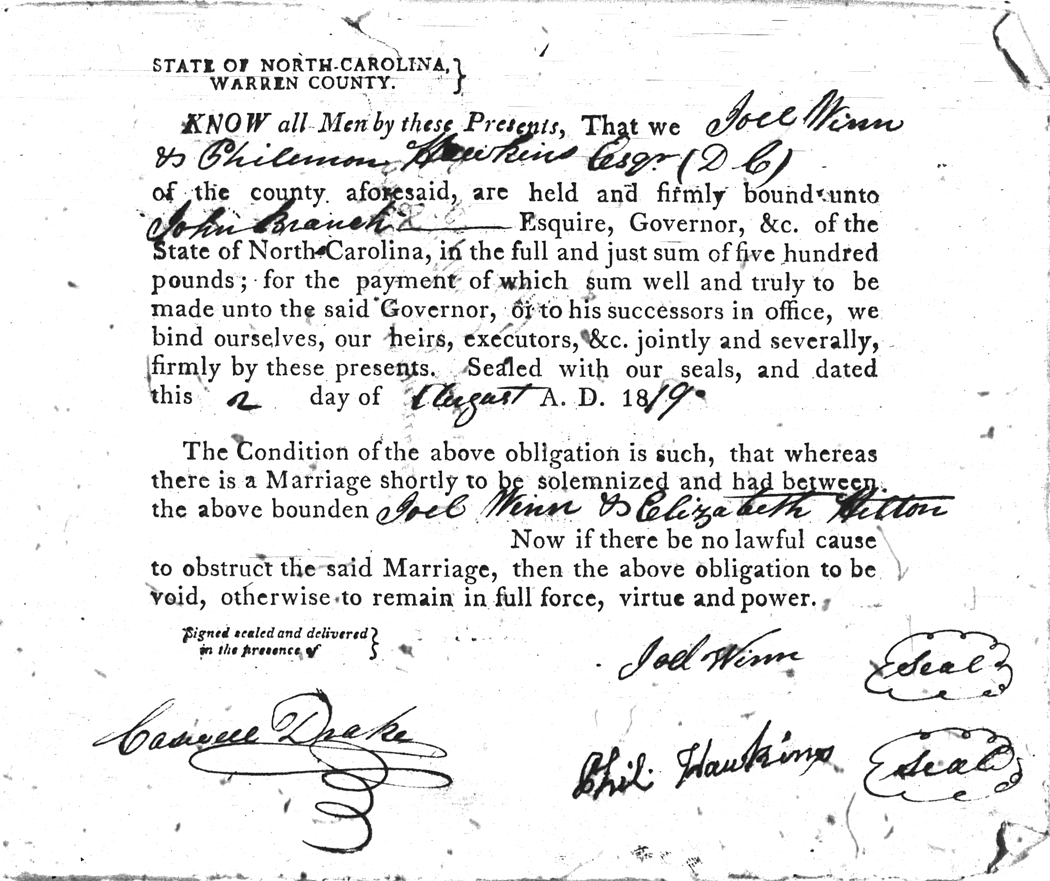 STATE OF NORTH-CAROLINA,
WARREN COUNTY.
KNOW all Men by these Presents, That we Joel Winn
& Philemon Hawkins Esqr. (D C)
of the county aforesaid, are held and firmly bound unto
John Branch Esquire, Governor, &c. of the
State of North-Carolina, in the full and just sum of five hundred
pounds; for the payment of which sum well and truly to be
made unto the said Governor, or to his successors in office, we
bind ourselves, our heirs, executors, &c. jointly and severally,
firmly by these presents. Sealed with our seals, and dated
this 2 day of August A. D. 1819.
The Condition of the above obligation is such, that whereas
there is a Marriage shortly to be solemnized and had between
the above bounden Joel Winn & Elizabeth Hilton
Now if there be no lawful cause
to obstruct the said Marriage, then the above obligation to be
void, otherwise to remain in full force, virtue and power.
Signed sealed and delivered
in the presence of
Joel Winn Seal
Caswell Drake
Phil. Hawkins Seal